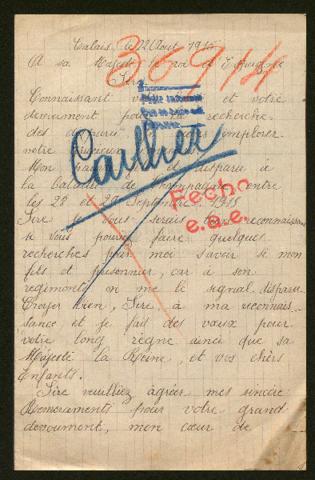 Calais, le 22 Août 1916
A sa Majesté le roi d'Espagne
36944
Sire
Connaissant et votre
devoument pour la recherche
des disparus implorer
votre
Caulliez
Mon disparu à
la Bataille de Champagne entre
les 28 et 29 Septembre 1915
Fecho
e.a.e.
Sire je vous serais reconnaissant
si vous pouviez faire quelques
recherches pour moi savoir si mon
fils et prisonnier, car à son
regiments on me le signal disparu
Croyez bien, Sire, à ma reconnais
sance et je fait des vœux pour
votre long règne ainsi que sa
Majesté la Reine, et vos chers
Enfants.
Sire veuilliez agréer mes sincère
Remerciaments pour votre grand
devoument, mon cœur de